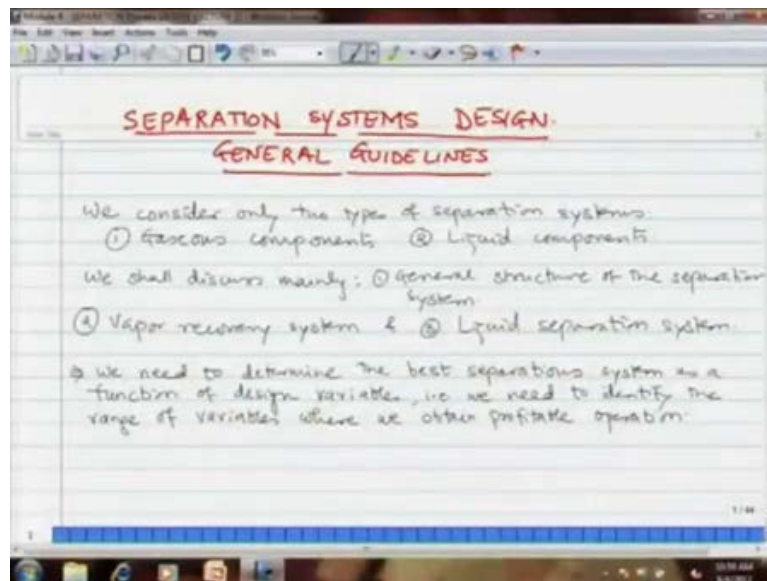 File Edit View Insert Actions Tools Help
SEPARATION SYSTEMS DESIGN.
GENERAL GUIDELINES
We consider only two types of separation systems.
① Gaseous components ② Liquid components
We shall discuss mainly: ① General structure of the separation
system
② Vapor recovery system & ③ Liquid separation system.
We need to determine the best separations system as a
function of design variables, i.e we need to identify the
range of variables where we obtain profitable operation.